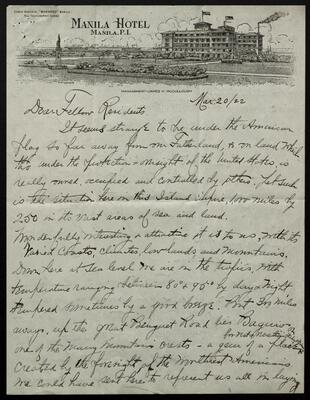 MANILA HOTEL
MANILA, P.I.
MANAGEMENT-JAMES H. McCULLOUGH
Mar 20/22
Dear Fellow Residents
It seems strange to be under the American
flag so far away from our Fatherland, & on land which
tho under the Protection & oversight of the United States, is
really owned, occupied and controlled by others. Yet such
is the situation here on this Island Empire, 1100 miles by
250 in its vast areas of sea and land.
Wonderfully interesting & attractive it is to us, with its
Varied Coasts, climates, low lands and Mountains.
Down here at sea level we are in the tropics, with
temperature ranging between 80° & 95° by day & Night
tempered sometimes by a good breeze. But miles
away, up the great Benguet Road lies Baguio,
one of the Many Mountain crests - a gem of a place
Created by the foresight of the Northwest Americans
we could have sent here to represent us all in laying